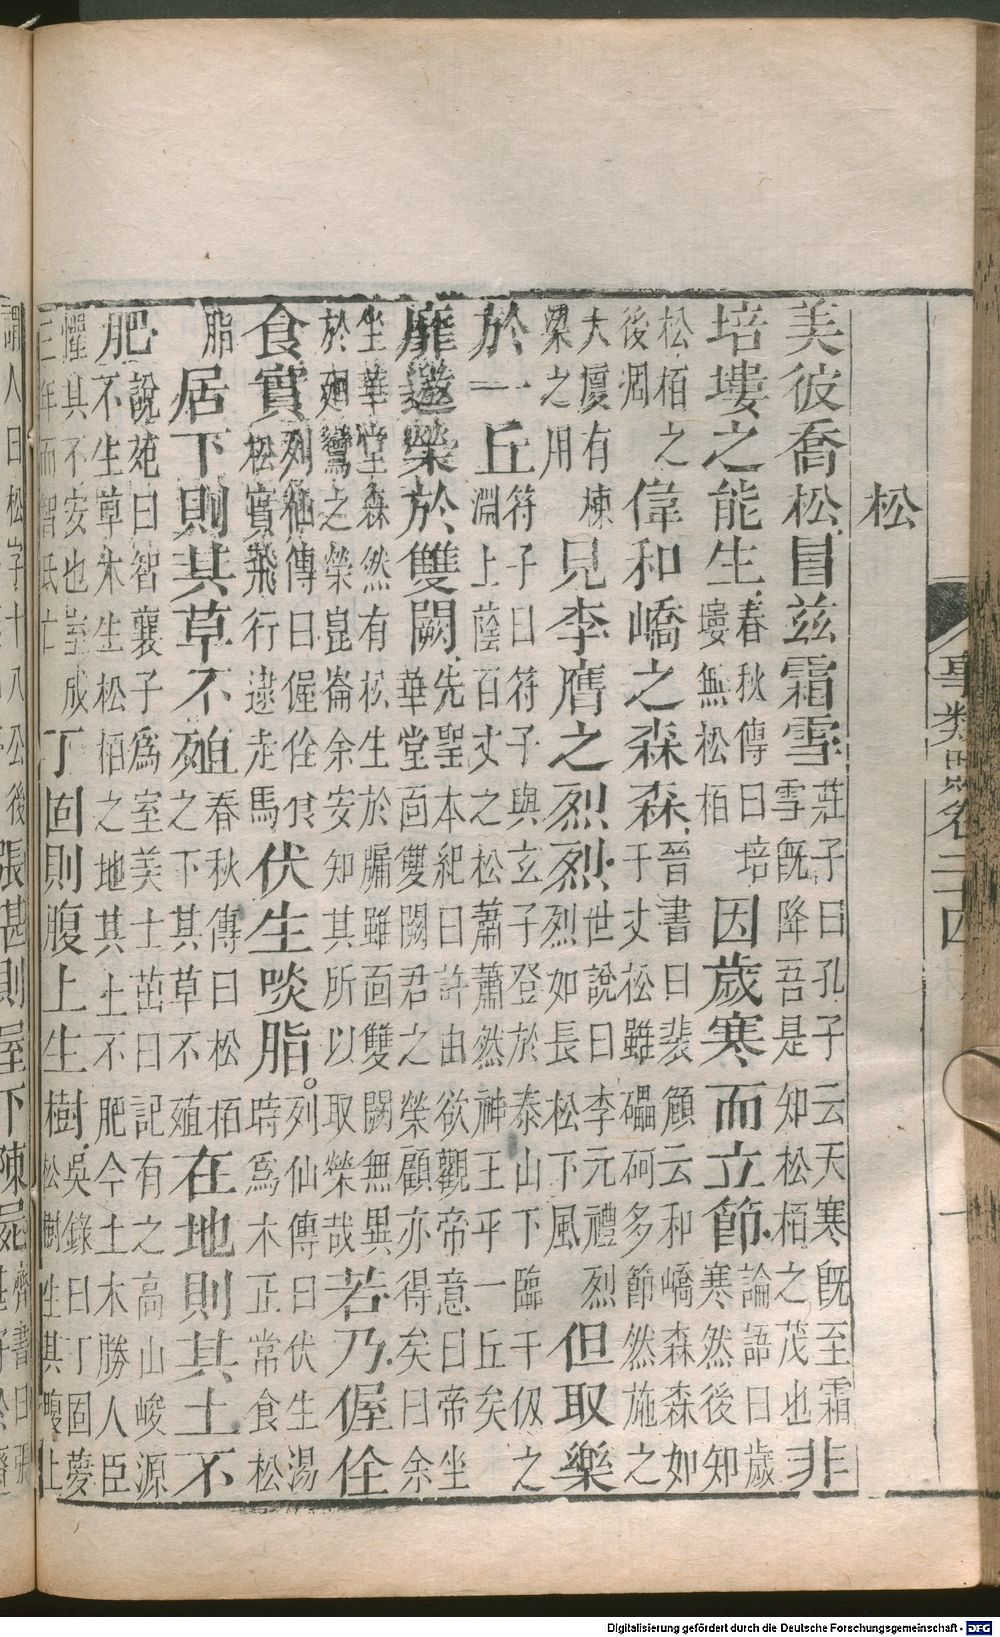 事類賦卷二十四
一
松
美彼喬松冒茲霜雪莊子曰孔子云天寒既至霜雪既降吾是知松栢之茂也非
培塿之能生春秋傳曰培塿無松栢因歲寒而立節論語曰歲寒然後知
松栢之後凋偉和嶠之森森晉書曰裴頠云和嶠森森如千丈松雖礧砢多節然施之
大廈有棟梁之用見李膺之烈烈世說曰李元禮烈烈如長松下風但取樂
於一丘符子曰符子與玄子登於泰山下臨千仭之淵上蔭百丈之松蕭蕭然神王乎一丘矣
靡邀榮於雙闕先聖本紀曰許由欲觀帝意曰帝坐華堂面雙闕君之榮顧亦得矣曰余
坐華堂森然有松生於牖雖面雙闕無異於廻鸞之榮崑崙余安知其所以取榮哉若乃偓佺
食實列仙傳曰偓佺食松實飛行逮走馬伏生啖脂列仙傳曰伏生湯時爲木正常食松
脂居下則其草不殖春秋傳曰松栢之下其草不殖在地則其土不
肥說苑曰智襄子爲室美士茁曰記有之高山峻源不生草木生松栢之地其土不肥今土木勝人臣
懼其不安也室成三年而智氏亡丁固則腹上生樹吳錄曰丁固夢松樹生其腹上
謂人曰松字十八公後張湛則屋下陳屍齊書曰張
Digitalisierung gefördert durch die Deutsche Forschungsgemeinschaft - DFG